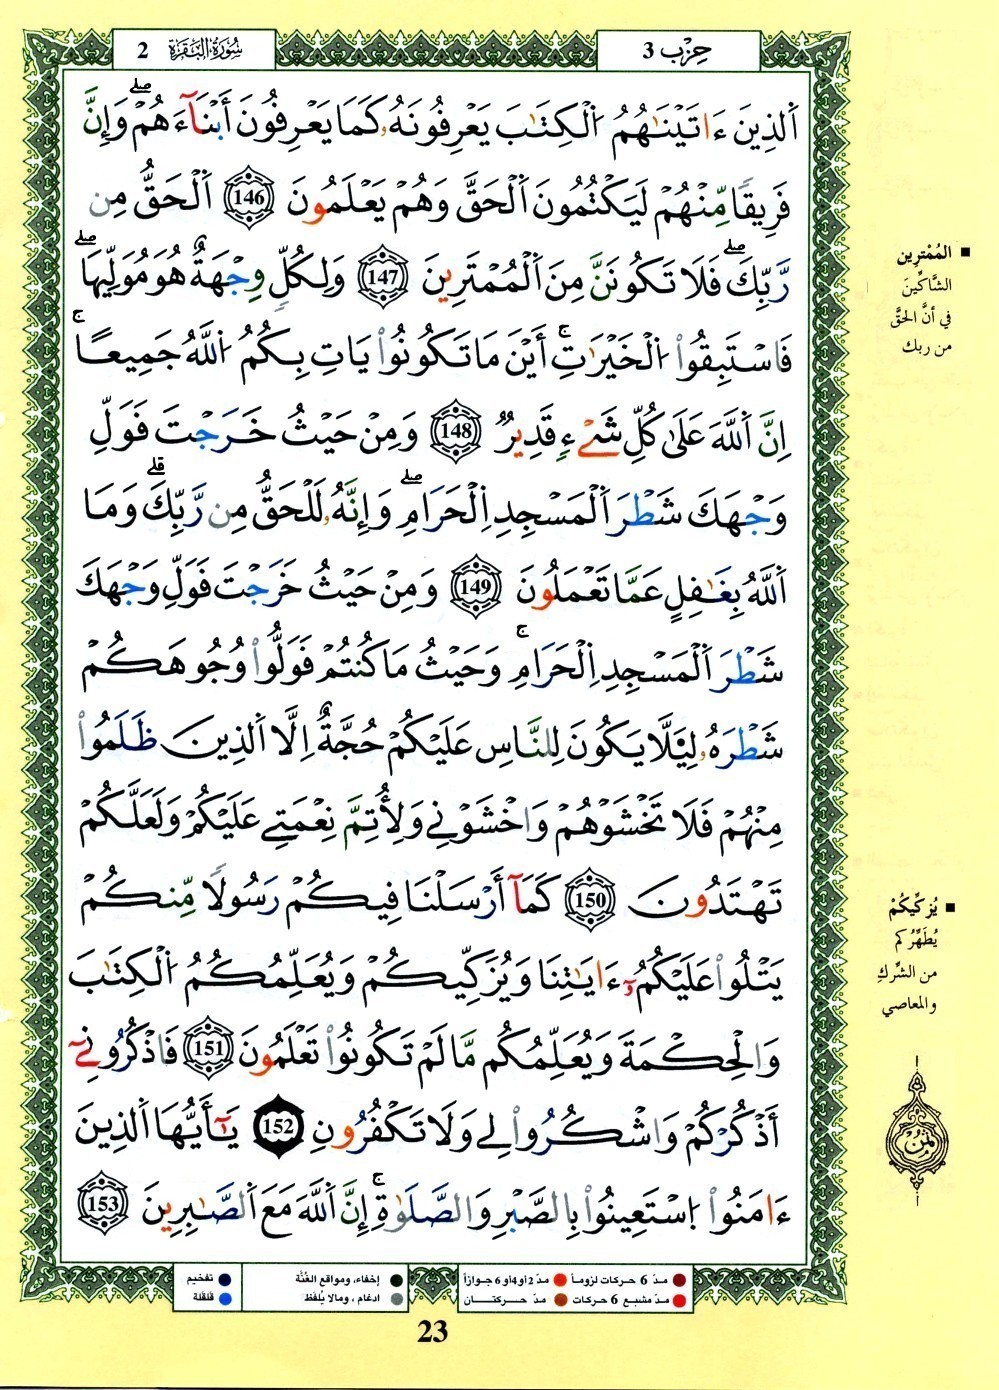 حِزْب 3
سُورَةُ البَقَرَةِ 2
اَ۬لذِينَ ءَاتَيْنَٰهُمُ اُ۬لْكِتَٰبَ يَعْرِفُونَهُۥ كَمَا يَعْرِفُونَ أَبْنَآءَهُمْۖ وَإِنَّ
فَرِيقاٗ مِّنْهُمْ لَيَكْتُمُونَ اَ۬لْحَقَّ وَهُمْ يَعْلَمُونَ 146 اَ۬لْحَقُّ مِن
رَّبِّكَۖ فَلَا تَكُونَنَّ مِنَ اَ۬لْمُمْتَرِينَ 147 وَلِكُلّٖ وِجْهَةٌ هُوَ مُوَلِّيهَاۖ
فَاسْتَبِقُواْ اُ۬لْخَيْرَٰتِۚ أَيْنَ مَا تَكُونُواْ يَاتِ بِكُمُ اُ۬للَّهُ جَمِيعاًۚ
اِنَّ اَ۬للَّهَ عَلَىٰ كُلِّ شَےْءٖ قَدِيرٞ 148 وَمِنْ حَيْثُ خَرَجْتَ فَوَلِّ
وَجْهَكَ شَطْرَ اَ۬لْمَسْجِدِ اِ۬لْحَرَامِۖ وَإِنَّهُۥ لَلْحَقُّ مِن رَّبِّكَۗ وَمَا
اَ۬للَّهُ بِغَٰفِلٍ عَمَّا تَعْمَلُونَ 149 وَمِنْ حَيْثُ خَرَجْتَ فَوَلِّ وَجْهَكَ
شَطْرَ اَ۬لْمَسْجِدِ اِ۬لْحَرَامِۚ وَحَيْثُ مَا كُنتُمْ فَوَلُّواْ وُجُوهَكُمْ
شَطْرَهُۥ لِيَلَّا يَكُونَ لِلنَّاسِ عَلَيْكُمْ حُجَّةٌ اِلَّا اَ۬لذِينَ ظَلَمُواْ
مِنْهُمْ فَلَا تَخْشَوْهُمْ وَاخْشَوْنِے وَلِأُتِمَّ نِعْمَتِے عَلَيْكُمْ وَلَعَلَّكُمْ
تَهْتَدُونَ 150 كَمَآ أَرْسَلْنَا فِيكُمْ رَسُولاٗ مِّنكُمْ
يَتْلُواْ عَلَيْكُمُۥٓ ءَايَٰتِنَا وَيُزَكِّيكُمْ وَيُعَلِّمُكُمُ اُ۬لْكِتَٰبَ
وَالْحِكْمَةَ وَيُعَلِّمُكُم مَّا لَمْ تَكُونُواْ تَعْلَمُونَ 151 فَاذْكُرُونِےٓ
أَذْكُرْكُمْ وَاشْكُرُواْ لِے وَلَا تَكْفُرُونِ 152 يَٰٓأَيُّهَا اَ۬لذِينَ
ءَامَنُواْ اُ۪سْتَعِينُواْ بِالصَّبْرِ وَالصَّلَوٰةِۚ إِنَّ اَ۬للَّهَ مَعَ اَ۬لصَّٰبِرِينَ 153
المُمْتَرِين
الشَّاكِّينَ
في أنَّ الحَقَّ
من ربك
يُزَكِّيكُمْ
يُطَهِّرُكم
من الشِّركِ
والمعاصي
ثُمُن
مدّ 6 حركات لزوماً مدّ 2 أو 4 أو 6 جوازاً
مدّ مشبع 6 حركات مدّ حـركتـــان
إخفاء، ومواقع الغُنَّة
ادغام ، ومالا يُلفَظ
تفخيم
قلقلة
23